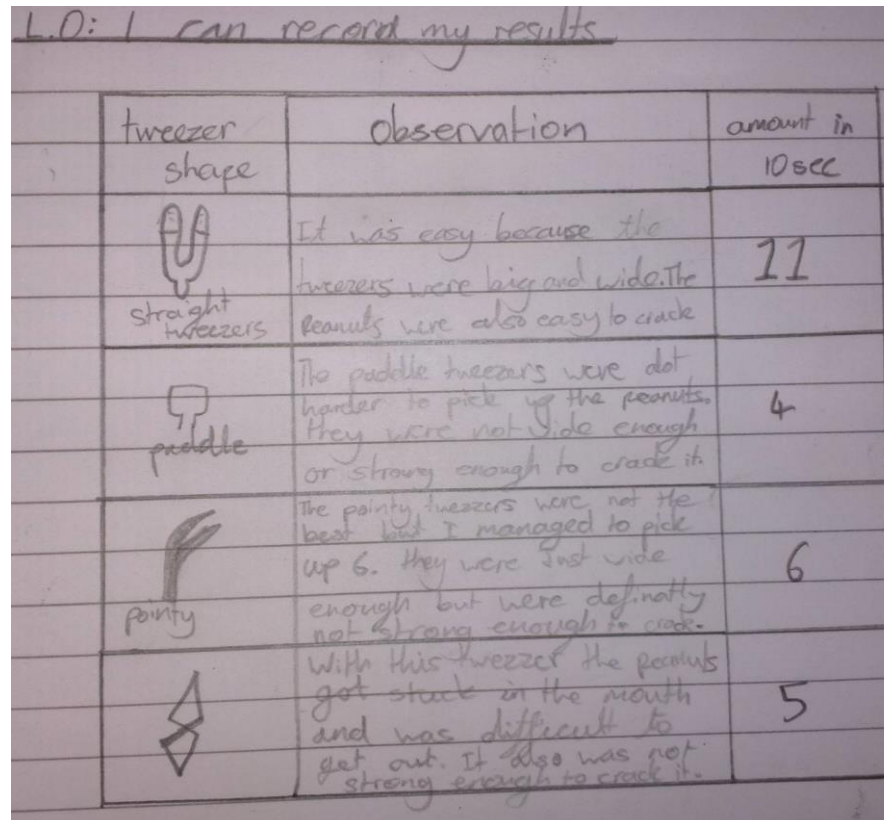 L.O: I can record my results
tweezer
shape
observation
amount in
10 sec
straight
tweezers
It was easy because the
tweezers were big and wide. The
Peanuts were also easy to crack
11
paddle
The paddle tweezers were alot
harder to pick up the peanuts.
they were not wide enough
or strong enough to crack it.
4
pointy
The pointy tweezers were not the
best but I managed to pick
up 6. they were Just wide
enough but were definatly
not strong enough to crack.
6
With this twezzer the peanuts
got stuck in the mouth
and was difficult to
get out. It also was not
strong enough to crack it.
5